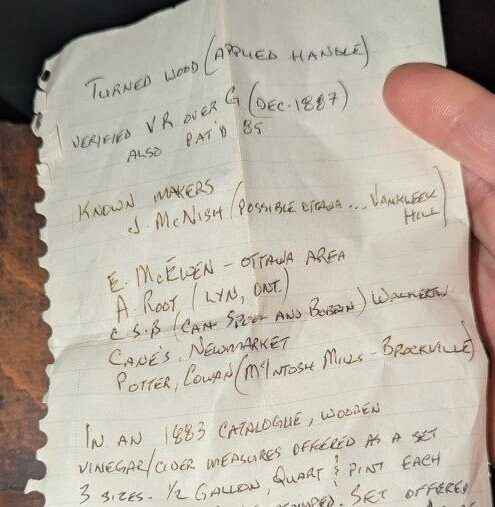 TURNED WOOD (APPLIED HANDLE)
VERIFIED VR OVER G (DEC. 1887)
ALSO PAT'D 85
KNOWN MAKERS
J. MCNISH (POSSIBLE OTTAWA... VANKLEEK HILL)
E. MCEWEN - OTTAWA AREA
A. ROOT, (LYN, ONT.)
C.S.B (CAN. SPOOL AND BOBBIN) WALKERTON
CANE'S, NEWMARKET
POTTER, COWAN (MCINTOSH MILLS - BROCKVILLE)
IN AN 1883 CATALOGUE, WOODEN
VINEGAR/CIDER MEASURES OFFERED AS A SET
3 SIZES. 1/2 GALLON, QUART & PINT EACH
SET OFFERED